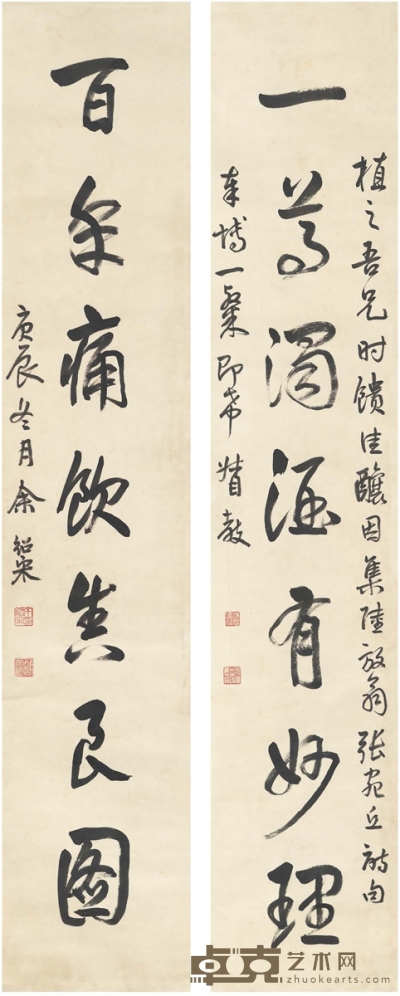 植之吾兄时饋佳釀因集陸放翁張宛丘詩句
一尊濁酒有妙理
奉博一粲即希教
百年痛飲真良圖
庚辰冬月余紹宋
卓克艺术网
zhuokearts.com